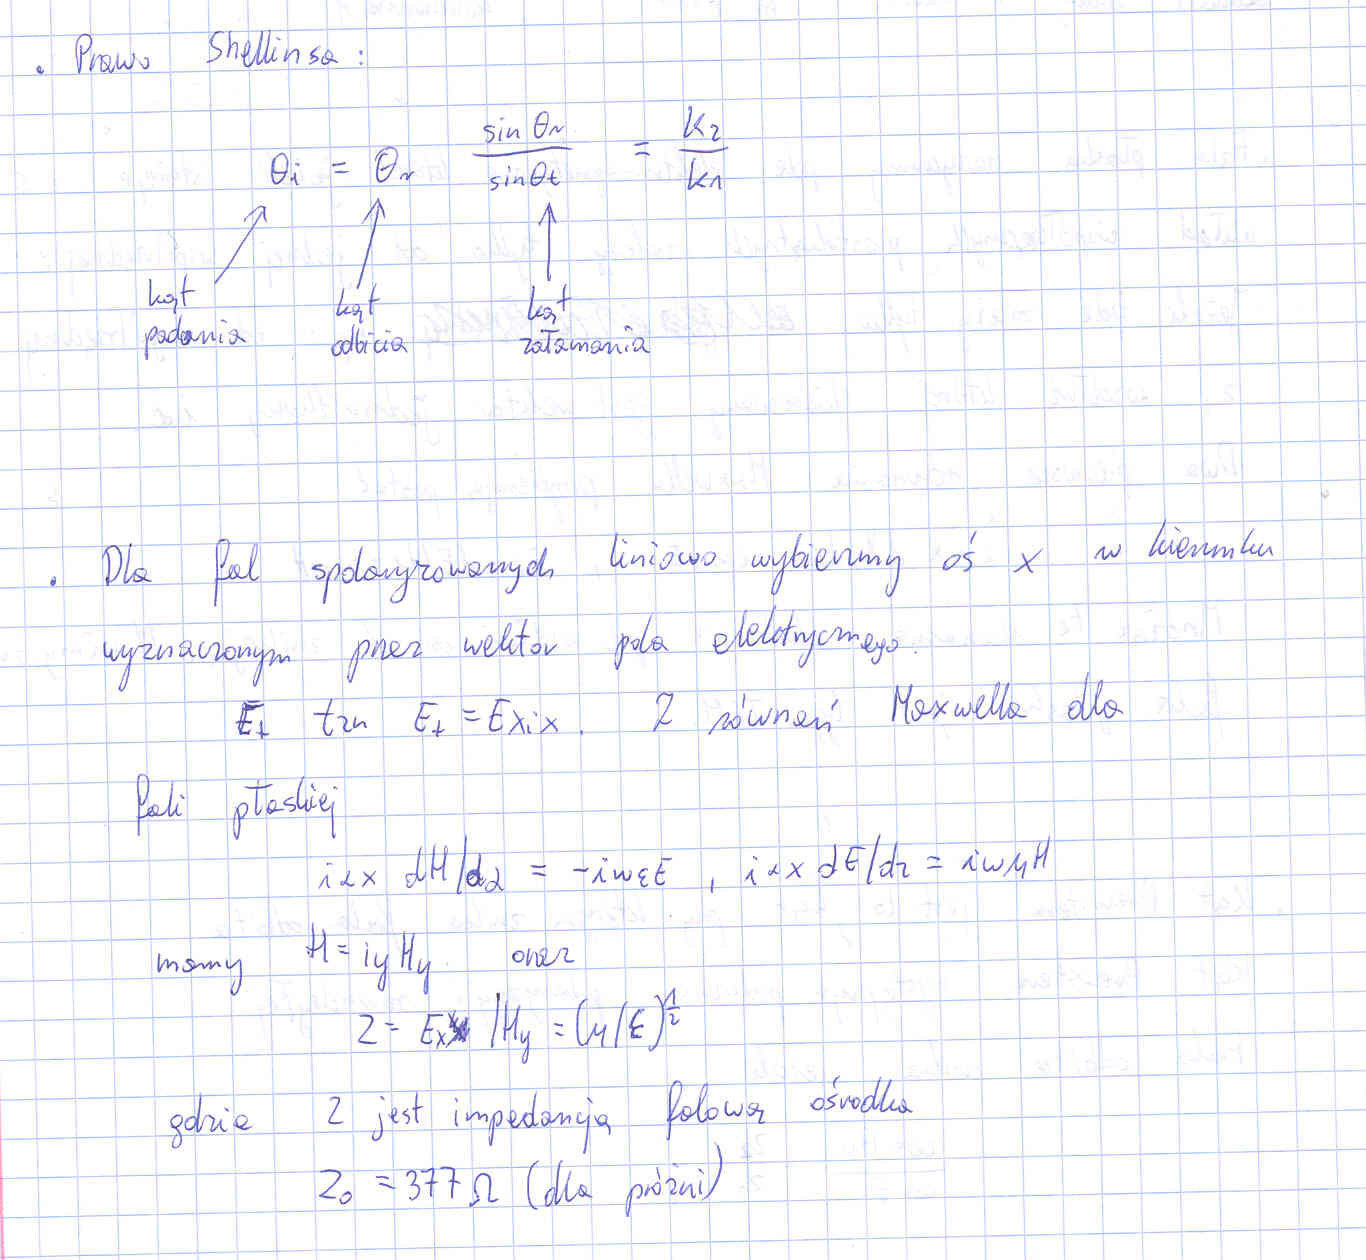 . Prawo Shellinsa :
θi = θr sin θr / sin θt = k2 / k1
kąt padania kąt odbicia kąt załamania
. Dla fal spolaryzowanych liniowo wybierzmy oś x w kierunku
wyznaczonym przez wektor pola elektrycznego.
Et tzn Et = Ex ix . Z równań Maxwella dla
fali płaskiej
iz x dH/dz = -iωεE , iz x dE/dz = iωμH
mamy H = iy Hy oraz
Z = Ex /Hy = (μ/ε)^1/2
gdzie Z jest impedancją falową ośrodka
Z0 = 377 Ω (dla próżni)